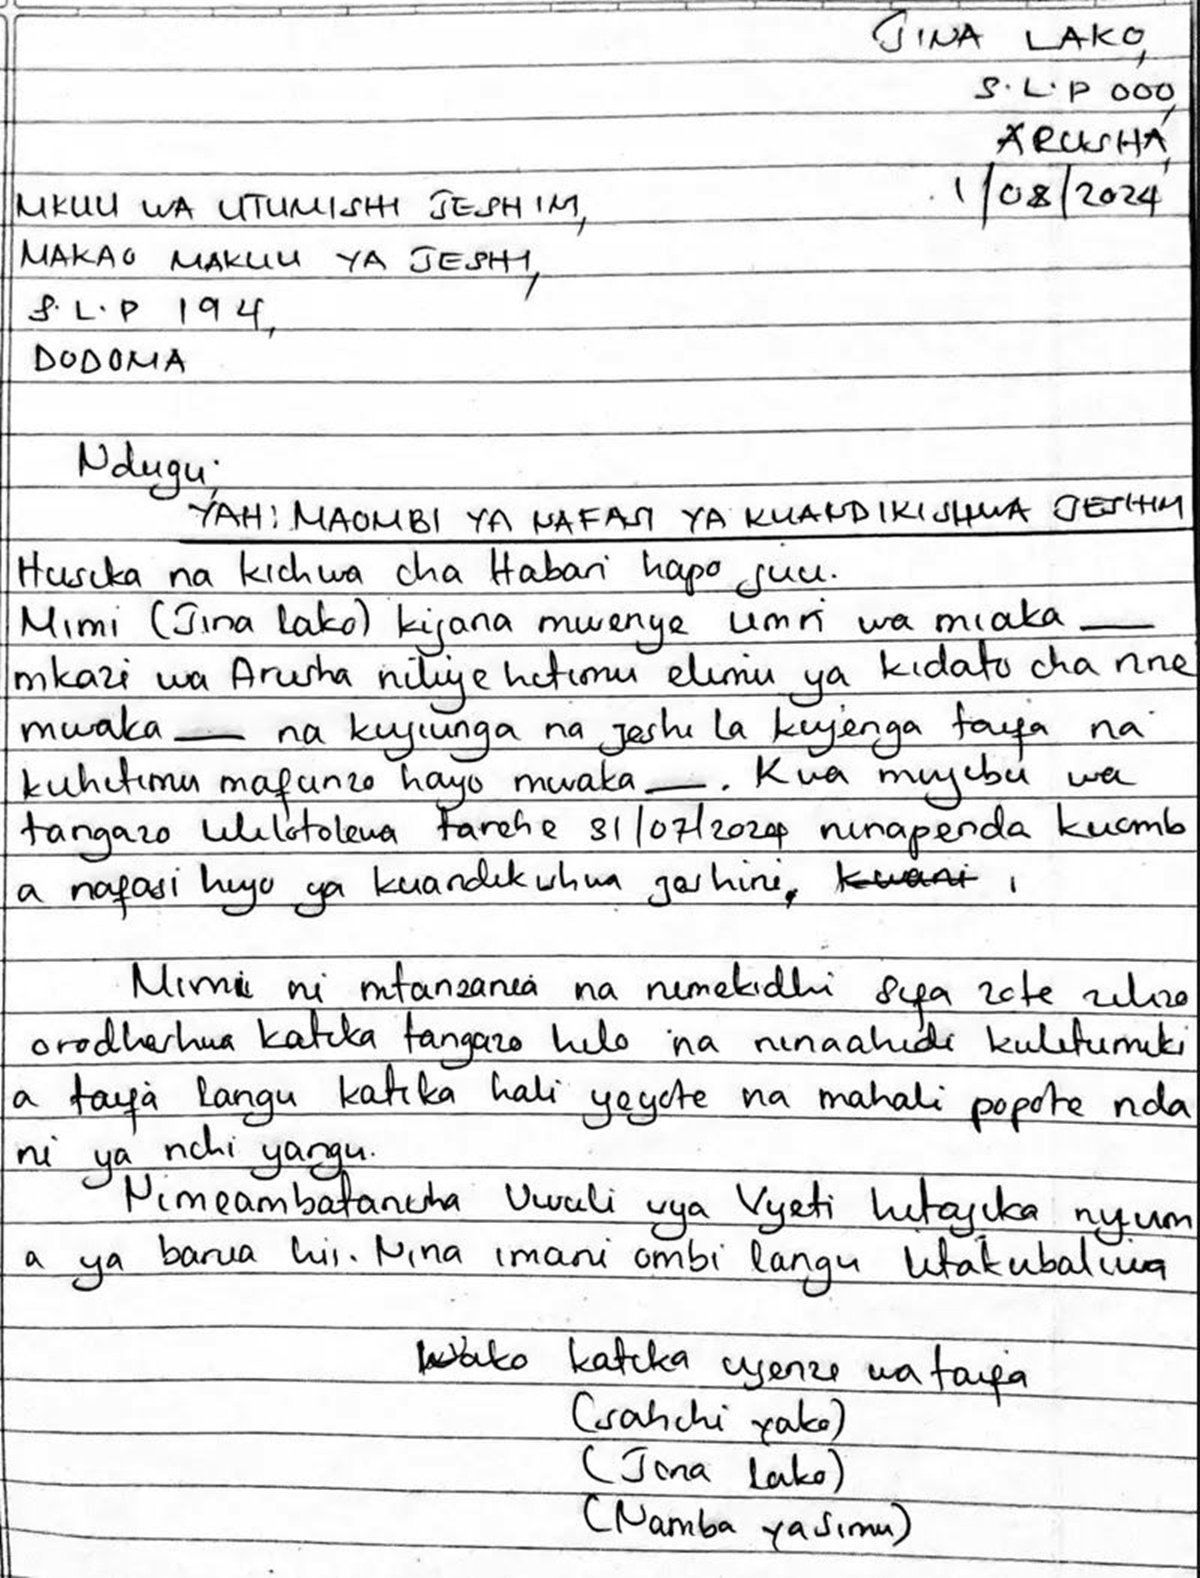 JINA LAKO,
S.L.P 000,
ARUSHA,
1/08/2024
MKUU WA UTUMISHI JESHINI,
MAKAO MAKUU YA JESHI,
S.L.P 194,
DODOMA
Ndugu,
YAH: MAOMBI YA NAFASI YA KUANDIKISHWA JESHINI
Husika na kichwa cha Habari hapo juu.
Mimi (Jina lako) kijana mwenye umri wa miaka ___
mkazi wa Arusha niliyehitimu elimu ya kidato cha nne
mwaka ___ na kujiunga na jeshi la kujenga taifa na
kuhitimu mafunzo hayo mwaka ___. Kwa mujibu wa
tangazo lililotolewa tarehe 31/07/2024 ninapenda kuomb
a nafasi hiyo ya kuandikishwa jeshini, kwani ,
Mimi ni mtanzania na nimekidhi sifa zote zilizo
orodheshwa katika tangazo hilo na ninaahidi kulitumiki
a taifa langu katika hali yeyote na mahali popote nda
ni ya nchi yangu.
Nimeambatanisha Uwili vya Vyeti hitajika nyum
a ya barua hii. Nina imani ombi langu litakubaliwa
Wako katika ujenzi wa taifa
(sahihi yako)
(Jina lako)
(Namba ya simu)